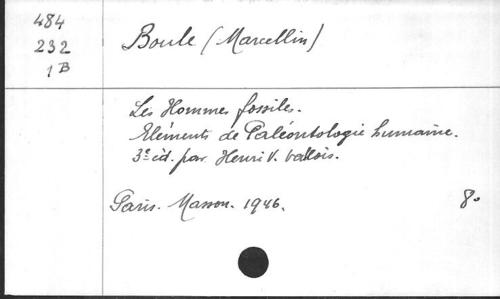 484
232
1 B
Boule (Marcellin)
Les Hommes fossiles.
Eléments de Paléontologie humaine.
3e éd. par Henri V. Vallois.
Paris. Masson. 1946.
8o